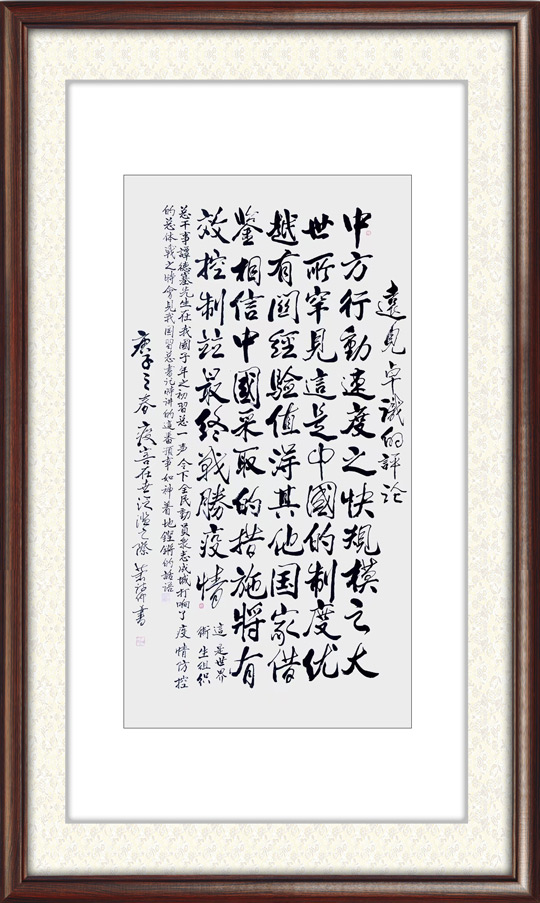 遠見卓識的評论
中方行動速度之快規模之大
世所罕見這是中國的制度优
越有関経驗值得其他国家借
鑒相信中國采取的措施將有
效控制並最终戰勝疫情
這是世界
衛生组织
总干事譚德塞先生在我國子年之初習总一声令下全民動員衆志成城打响了疫情防控
的总体戰之時會見我国習总書记時讲的這番预事如神着地鏗锵的話语
庚子之春疫害在世泛滥之際 書